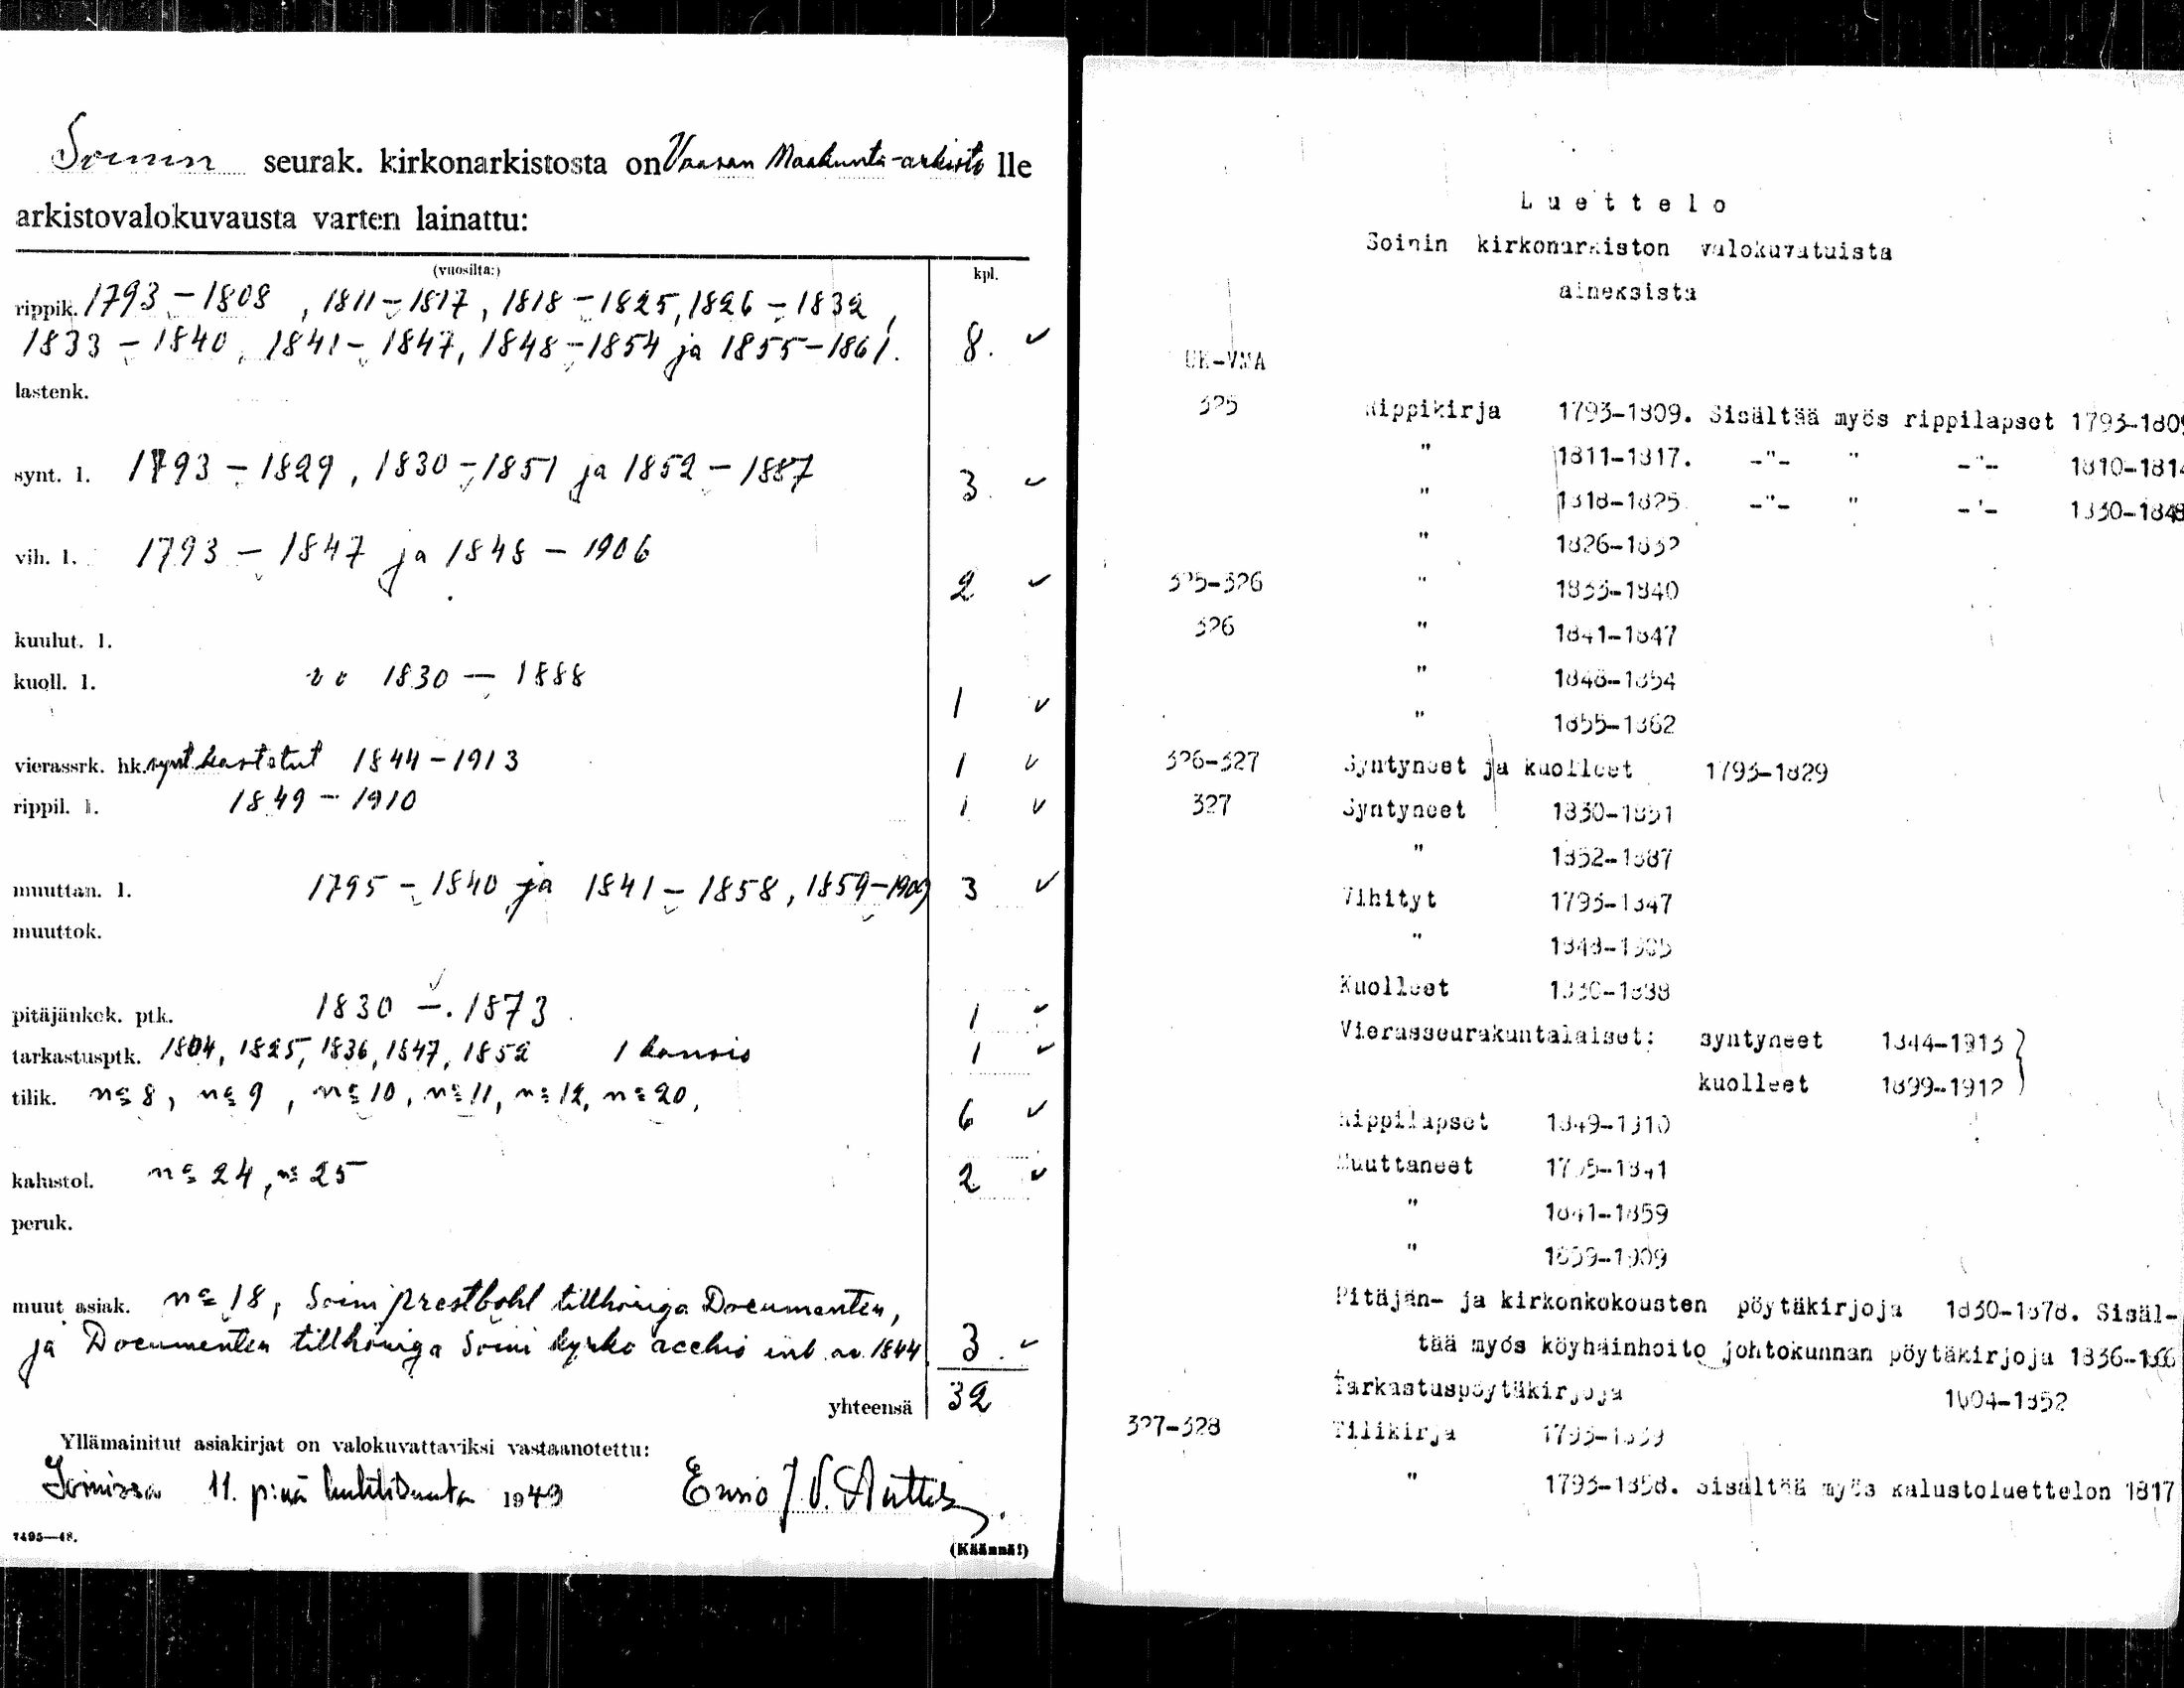 Soinin seurak. kirkonarkistosta on Vaasan Maakunta-arkisto lle
arkistovalokuvausta varten lainattu:
(vuosilta:) kpl.
rippik. 1793 – 1808 , 1811 – 1817, 1818 – 1825, 1826 – 1832 ,
1833 – 1840, 1841 – 1847, 1848 – 1854 ja 1855 – 1861. 8.
lastenk.
synt. l. 1793 – 1829, 1830 – 1851 ja 1852 – 1887 3.
vih. l. 1793 – 1847 ja 1848 – 1906 2
kuulut. l.
kuoll. l. 1830 – 1888 1
vierassrk. hk. synt. kastetut 1844 – 1913 1
rippil. l. 1849 – 1910 1
muuttan. l. 1795 – 1840 ja 1841 – 1858, 1859 – 1909 3
muuttok.
pitäjänkok. ptk. 1830 – 1873. 1
tarkastusptk. 1804, 1825, 1836, 1847, 1852 1 kansio 1
tilik. nº 8, nº 9, nº 10, nº 11, nº 12, nº 20, 6
kalustol. nº 24, nº 25 2
peruk.
muut asiak. nº 18, Soini prestbohl tillhöriga Documenten,
ja Documenten tillhöriga Soini kyrko 1844 3.
yhteensä 32
Yllämainitut asiakirjat on valokuvattaviksi vastaanotettu:
Soinissa 11. p:nä huhtikuuta 1949 Ensio J. V.
7495—48.
(Käännä!)
Luettelo
Soinin kirkonarkiston valokuvatuista
aineksista
UK-VMA
325 Rippikirja 1793-1809. Sisältää myös rippilapset 1793-1809
" 1811-1817. -"- " -"- 1810-1814
" 1818-1825 -"- " -"- 1830-1848
" 1826-1832
325-326 " 1833-1840
326 " 1841-1847
" 1848-1854
" 1855-1862
326-327 Syntyneet ja kuolleet 1793-1829
327 Syntyneet 1830-1851
" 1852-1887
Vihityt 1793-1847
" 1848-1905
Kuolleet 1830-1888
Vierasseurakuntalaiset: syntyneet 1844-1913 }
kuolleet 1899-1912
Rippilapset 1849-1910
Muuttaneet 1795-1841
" 1841-1859
" 1859-1909
Pitäjän- ja kirkonkokousten pöytäkirjoja 1830-1878. Sisäl-
tää myös köyhäinhoito johtokunnan pöytäkirjoja
Tarkastuspöytäkirjoja 1804-1852
327-328 Tilikirja 1793-1839
" 1793-1858. Sisältää myös kalustoluettelon 1817